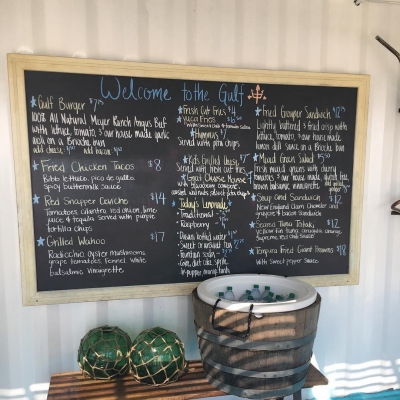 Welcome to the Gulf
Gulf Burger $7.75
100% All Natural Meyer Ranch Angus Beef
with lettuce, tomato, & our house made garlic
aioli on a Brioche bun
add cheese add bacon
Fried Chicken Tacos $8
Bibb lettuce, pico de gallo
spicy buttermilk sauce
Red Snapper Ceviche $14
Tomatoes, cilantro, red onion, lime
juice & tequila served with
tortilla chips
Grilled Wahoo $17
Radicchio, oyster mushrooms,
grape tomatoes, fennel, white
balsamic vinaigrette
Fresh Cut Fries $4
Yucca Fries
Hummus
Served with pita chips
Kids Grilled Cheese $7
Served with fresh cut fries
Goat Cheese Mousse
Today's Lemonade
Traditional
Raspberry
bottled water
Sweet or unsweet tea
Fountain soda
Coke, diet coke, Sprite,
Fried Grouper Sandwich
Lightly battered & fried crisp with
lettuce, tomato, & our house made
lemon dill sauce on a Brioche bun
Mixed Green Salad
Fresh mixed greens with cherry
tomatoes & our house made
balsamic vinaigrette
Soup and Sandwich $12
New England Clam Chowder and
gruyere & bacon Sandwich
Seared Tuna Tataki $12
supreme, red chili sauce
Tempura Fried Giant Prawns $18
with sweet pepper sauce